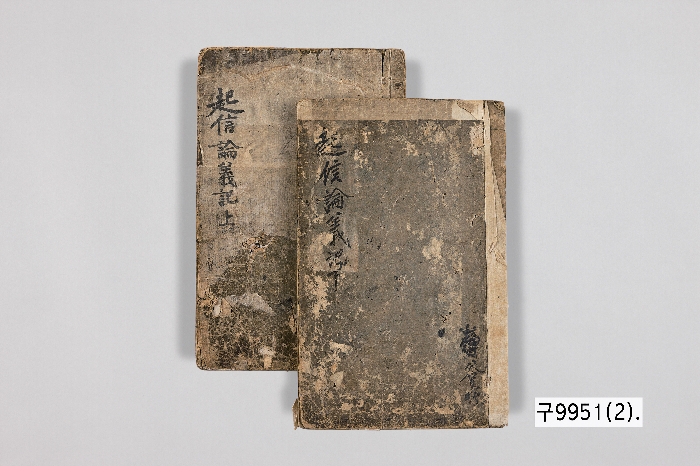 起信論義記上
起信論義記下
구9951(2).